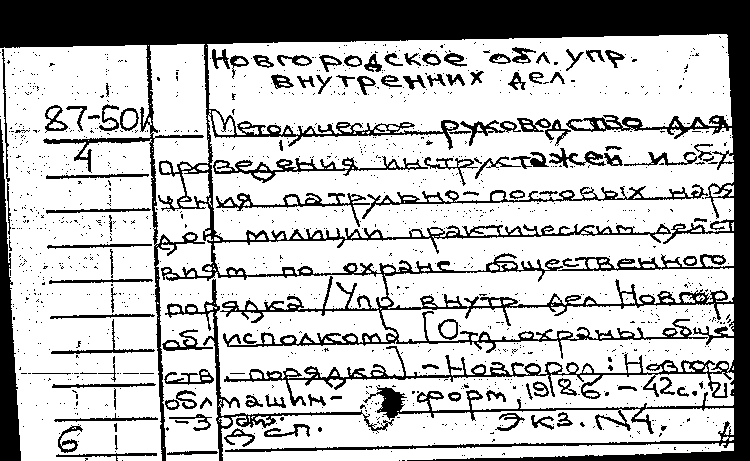 Новгородское обл. упр.
внутренних дел.
87-50И
4
Методическое руководство для
проведения инструктажей и обу-
чения патрульно-постовых наря-
дов милиции практическим дейст
виям по охране общественного
порядка / Упр. внутр. дел Новгор.
облисполкома. [Отд. охраны обще
ств. порядка]. - Новгород : Новгород
облмашин- форм, 1986. - 42 с.; 21
- 3 экз.
В сп. Экз. N4.
6